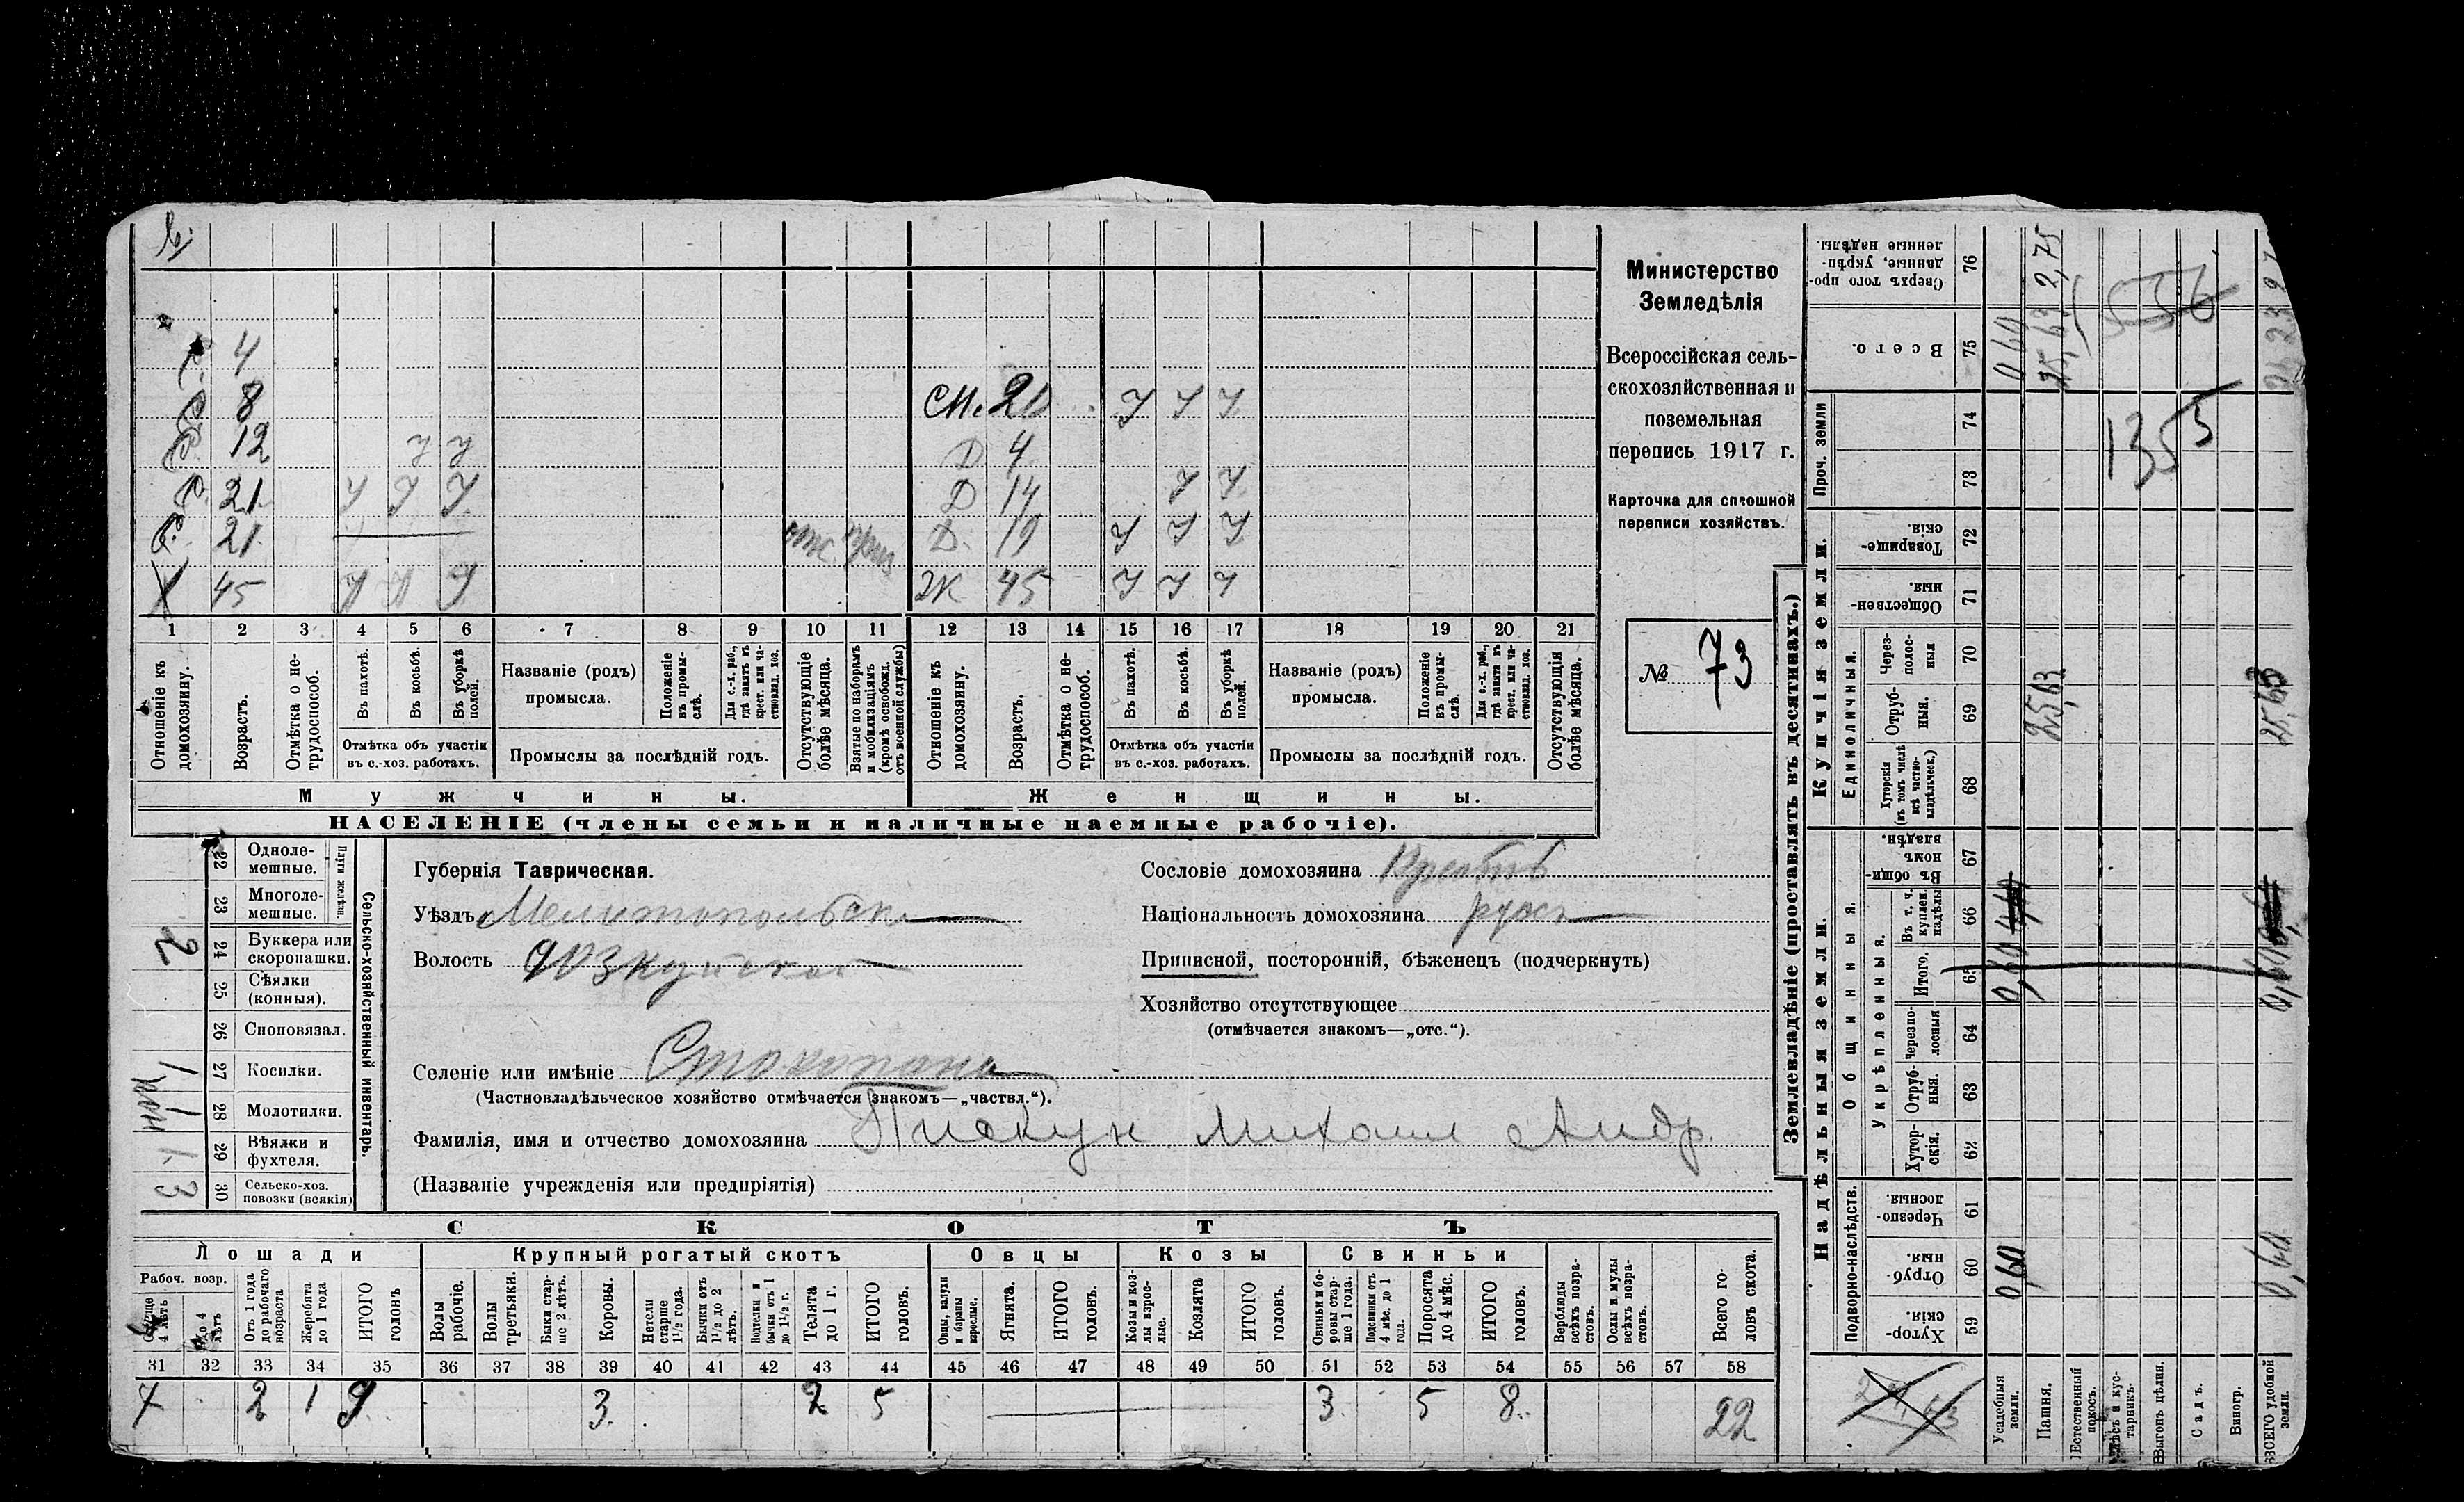 4
8
СМ. 20 У У У
12 Д 4
21 У У У Д 14 У У
21 Д. 19 У У У
Х 45 Ж 45 У У У
1 2 3 4 5 6 7 8 9 10 11 12 13 14 15 16 17 18 19 20 21
Отношеніе къ домохозяину.
Возрастъ.
Отмѣтка о нетрудоспособ.
Въ пахотѣ.
Въ косьбѣ.
Въ уборкѣ полей.
Отмѣтка объ участіи
въ с.-хоз. работахъ.
Названіе (родъ)
промысла.
Положеніе въ промыслѣ.
Для с.-х. раб., гдѣ занятъ въ крест. или частновлад. хоз.
Промыслы за послѣдній годъ.
Отсутствующіе болѣе мѣсяца.
Взятые по наборамъ и мобилизаціямъ (кромѣ освобожд. отъ военной службы)
Отношеніе къ домохозяину.
Возрастъ.
Отмѣтка о нетрудоспособ.
Въ пахотѣ.
Въ косьбѣ.
Въ уборкѣ полей.
Отмѣтка объ участіи
въ с.-хоз. работахъ.
Названіе (родъ)
промысла.
Положеніе въ промыслѣ.
Для с.-х. раб., гдѣ занятъ въ крест. или частновлад. хоз.
Промыслы за послѣдній годъ.
Отсутствующія болѣе мѣсяца.
Мужчины. Женщины.
НАСЕЛЕНІЕ (члены семьи и наличные наемные рабочіе).
Министерство
Земледѣлія
Всероссійская сель-
скохозяйственная и
поземельная
перепись 1917 г.
Карточка для сплошной
переписи хозяйствъ.
№ 73
22 Одноле-
мешные.
23 Многоле-
мешные.
Плуги желѣзн.
2 24 Буккера или
скоропашки.
25 Сѣялки
(конныя).
26 Сноповязал.
1 27 Косилки.
28 Молотилки.
1 29 Вѣялки и
фухтеля.
3 30 Сельско-хоз.
повозки (всякія)
Сельско-хозяйственный инвентарь.
Губернія Таврическая.
Уѣздъ Мелитопольск.
Волость
Селеніе или имѣніе
(Частновладѣльческое хозяйство отмѣчается знакомъ—„частвл.“).
Фамилія, имя и отчество домохозяина Пискун Михаил Андр.
(Названіе учрежденія или предпріятія)
Сословіе домохозяина
Національность домохозяина русс
Приписной, посторонній, бѣженецъ (подчеркнуть)
Хозяйство отсутствующее
(отмѣчается знакомъ—„отс.“).
СКОТЪ
Лошади Крупный рогатый скотъ Овцы Козы Свиньи
Рабоч. возр.
Старше 4 лѣтъ
До 4 лѣтъ
Отъ 1 года до рабочаго возраста
Жеребята до 1 года
ИТОГО головъ
Волы рабочіе.
Волы третьяки.
Быки старше 2 лѣтъ.
Коровы.
Нетели старше 1½ года.
Бычки отъ 1½ до 2 лѣтъ.
Подтелки и бычки отъ 1 до 1½ г.
Телята до 1 г.
ИТОГО головъ.
Овцы, валухи и бараны взрослые.
Ягнята.
ИТОГО головъ.
Козы и козлы взрослые.
Козлята
ИТОГО головъ.
Свиньи и боровы старше 1 года.
Подсвинки отъ 4 мѣс. до 1 года.
Поросята до 4 мѣс.
ИТОГО головъ.
Верблюды всѣхъ возрастовъ.
Ослы и мулы всѣхъ возрастовъ.
Всего головъ скота.
31 32 33 34 35 36 37 38 39 40 41 42 43 44 45 46 47 48 49 50 51 52 53 54 55 56 57 58
7 2 1 9 3 2 5 3 5 8 22
Землевладѣніе (проставлять въ десятинахъ.)
Надѣльныя земли. Купчія земли.
Подворно-наслѣдств.
Общинныя.
Укрѣпленныя.
Единоличныя.
Проч. земли
Хуторскія. 59
Отрубныя. 60
Черезполосныя 61
Хуторскія. 62
Отрубныя. 63
Черезполосныя 64
Итого. 65
Въ т. ч. куплен. надѣлы 66
Въ общинномъ владѣн. 67
Хуторскія (въ томъ числѣ всѣ частновладѣльческ.) 68
Отрубныя. 69
Черезполосныя 70
Общественныя 71
Товарищескія. 72
73
74
Всего. 75
Сверхъ того проданные, укрѣпленные надѣлы. 76
Усадебныя земли. 0,60 0,60 0 60
Пашня. 25,63 25,63 2,75
Естественный покосъ.
Лѣсъ и кустарникъ.
Выгонъ цѣлин.
Садъ.
Виногр.
ВСЕГО удобной земли. 0,60 25,63
1355
536